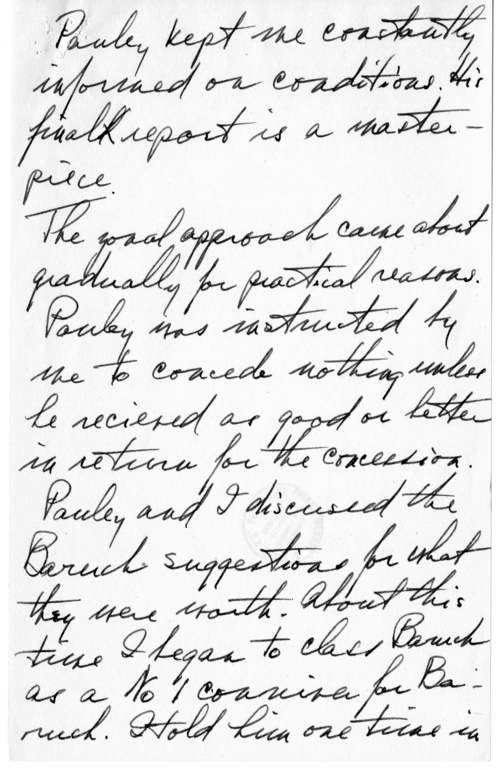 Pauley kept me constantly
informed on conditions. His
final report is a master-
piece.
The zonal approach came about
gradually for practical reasons.
Pauley was instructed by
me to concede nothing unless
he recieved as good or better
in return for the concession.
Pauley and I discussed the
Baruch suggestions for what
they were worth. About this
time I began to class Baruch
as a No 1 conniver for Ba-
ruch. I told him one time in